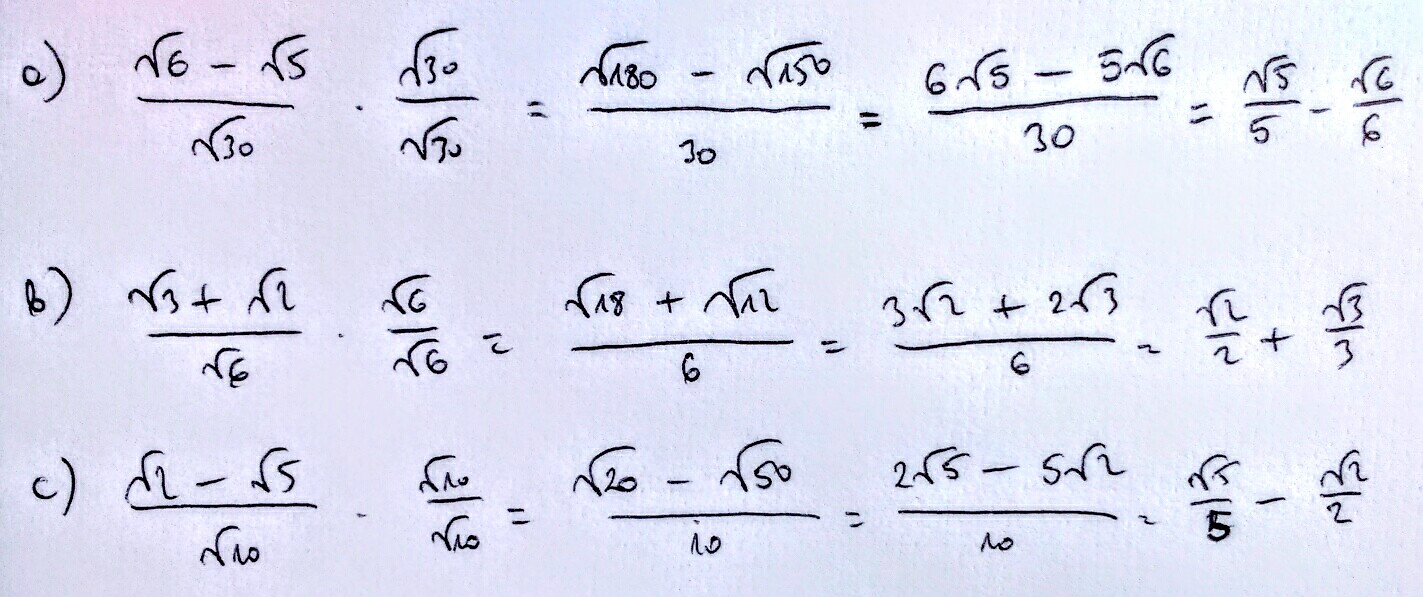 a) (√6 - √5)/√30 · √30/√30 = (√180 - √150)/30 = (6√5 - 5√6)/30 = √5/5 - √6/6
b) (√3 + √2)/√6 · √6/√6 = (√18 + √12)/6 = (3√2 + 2√3)/6 = √2/2 + √3/3
c) (√2 - √5)/√10 · √10/√10 = (√20 - √50)/10 = (2√5 - 5√2)/10 = √5/5 - √2/2